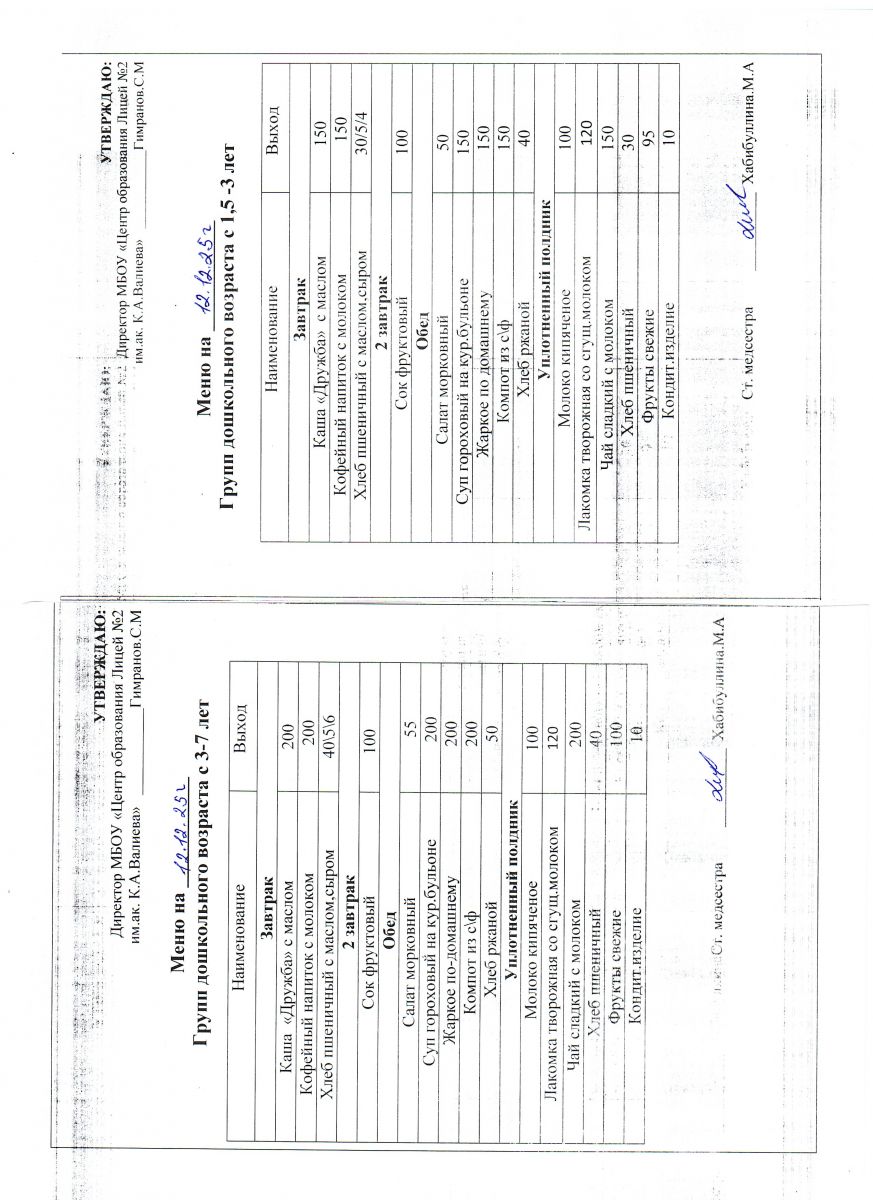 УТВЕРЖДАЮ:
Директор МБОУ «Центр образования Лицей №2
им.ак. К.А.Валиева» ________Гимранов.С.М
Меню на 12.12.25г
Групп дошкольного возраста с 3-7 лет
Наименование Выход
Завтрак
Каша «Дружба» с маслом 200
Кофейный напиток с молоком 200
Хлеб пшеничный с маслом,сыром 40\5\6
2 завтрак
Сок фруктовый 100
Обед
Салат морковный 55
Суп гороховый на кур.бульоне 200
Жаркое по-домашнему 200
Компот из с\ф 200
Хлеб ржаной 50
Уплотненный полдник
Молоко кипяченое 100
Лакомка творожная со сгущ.молоком 120
Чай сладкий с молоком 200
Хлеб пшеничный 40
Фрукты свежие 100
Кондит.изделие 10
Ст. медсестра ________ Хабибуллина.М.А
УТВЕРЖДАЮ:
Директор МБОУ «Центр образования Лицей №2
им.ак. К.А.Валиева» ________Гимранов.С.М
Меню на 12.12.25г
Групп дошкольного возраста с 1,5 -3 лет
Наименование Выход
Завтрак
Каша «Дружба» с маслом 150
Кофейный напиток с молоком 150
Хлеб пшеничный с маслом,сыром 30/5/4
2 завтрак
Сок фруктовый 100
Обед
Салат морковный 50
Суп гороховый на кур.бульоне 150
Жаркое по домашнему 150
Компот из с\ф 150
Хлеб ржаной 40
Уплотненный полдник
Молоко кипяченое 100
Лакомка творожная со сгущ.молоком 120
Чай сладкий с молоком 150
Хлеб пшеничный 30
Фрукты свежие 95
Кондит.изделие 10
Ст. медсестра ________ Хабибуллина.М.А